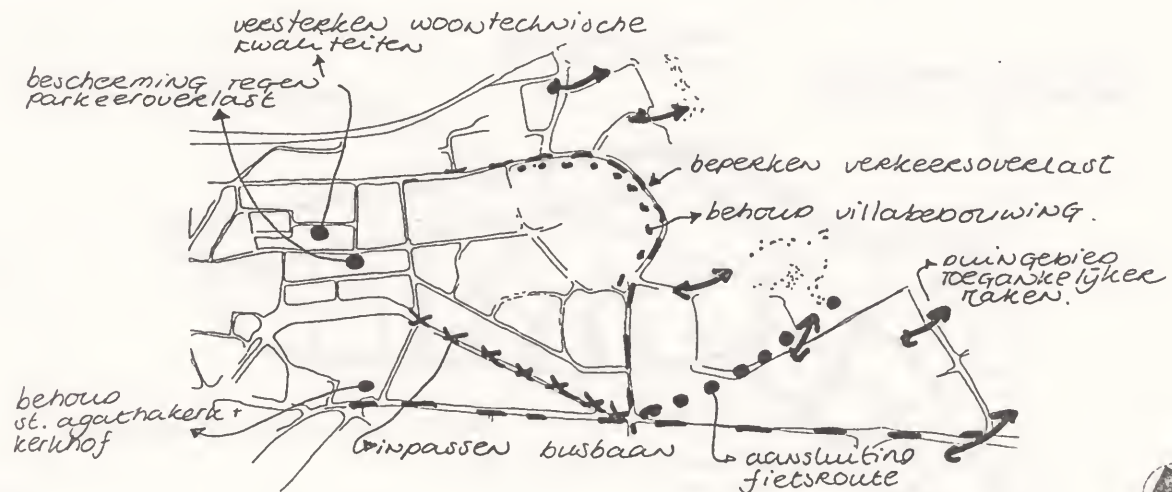 versterken woontechnische
kwaliteiten
bescherming tegen
parkeeroverlast
beperken verkeersoverlast
behoud villabebouwing.
duingebied
toegankelijker
maken.
behoud
st. agathakerk +
kerkhof
inpassen busbaan
aansluiting
fietsroute